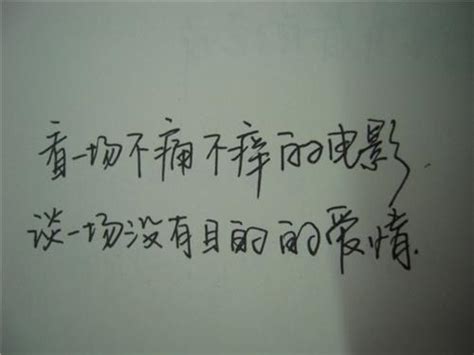 看一场不痛不痒的电影.
谈一场没有目的的爱情.